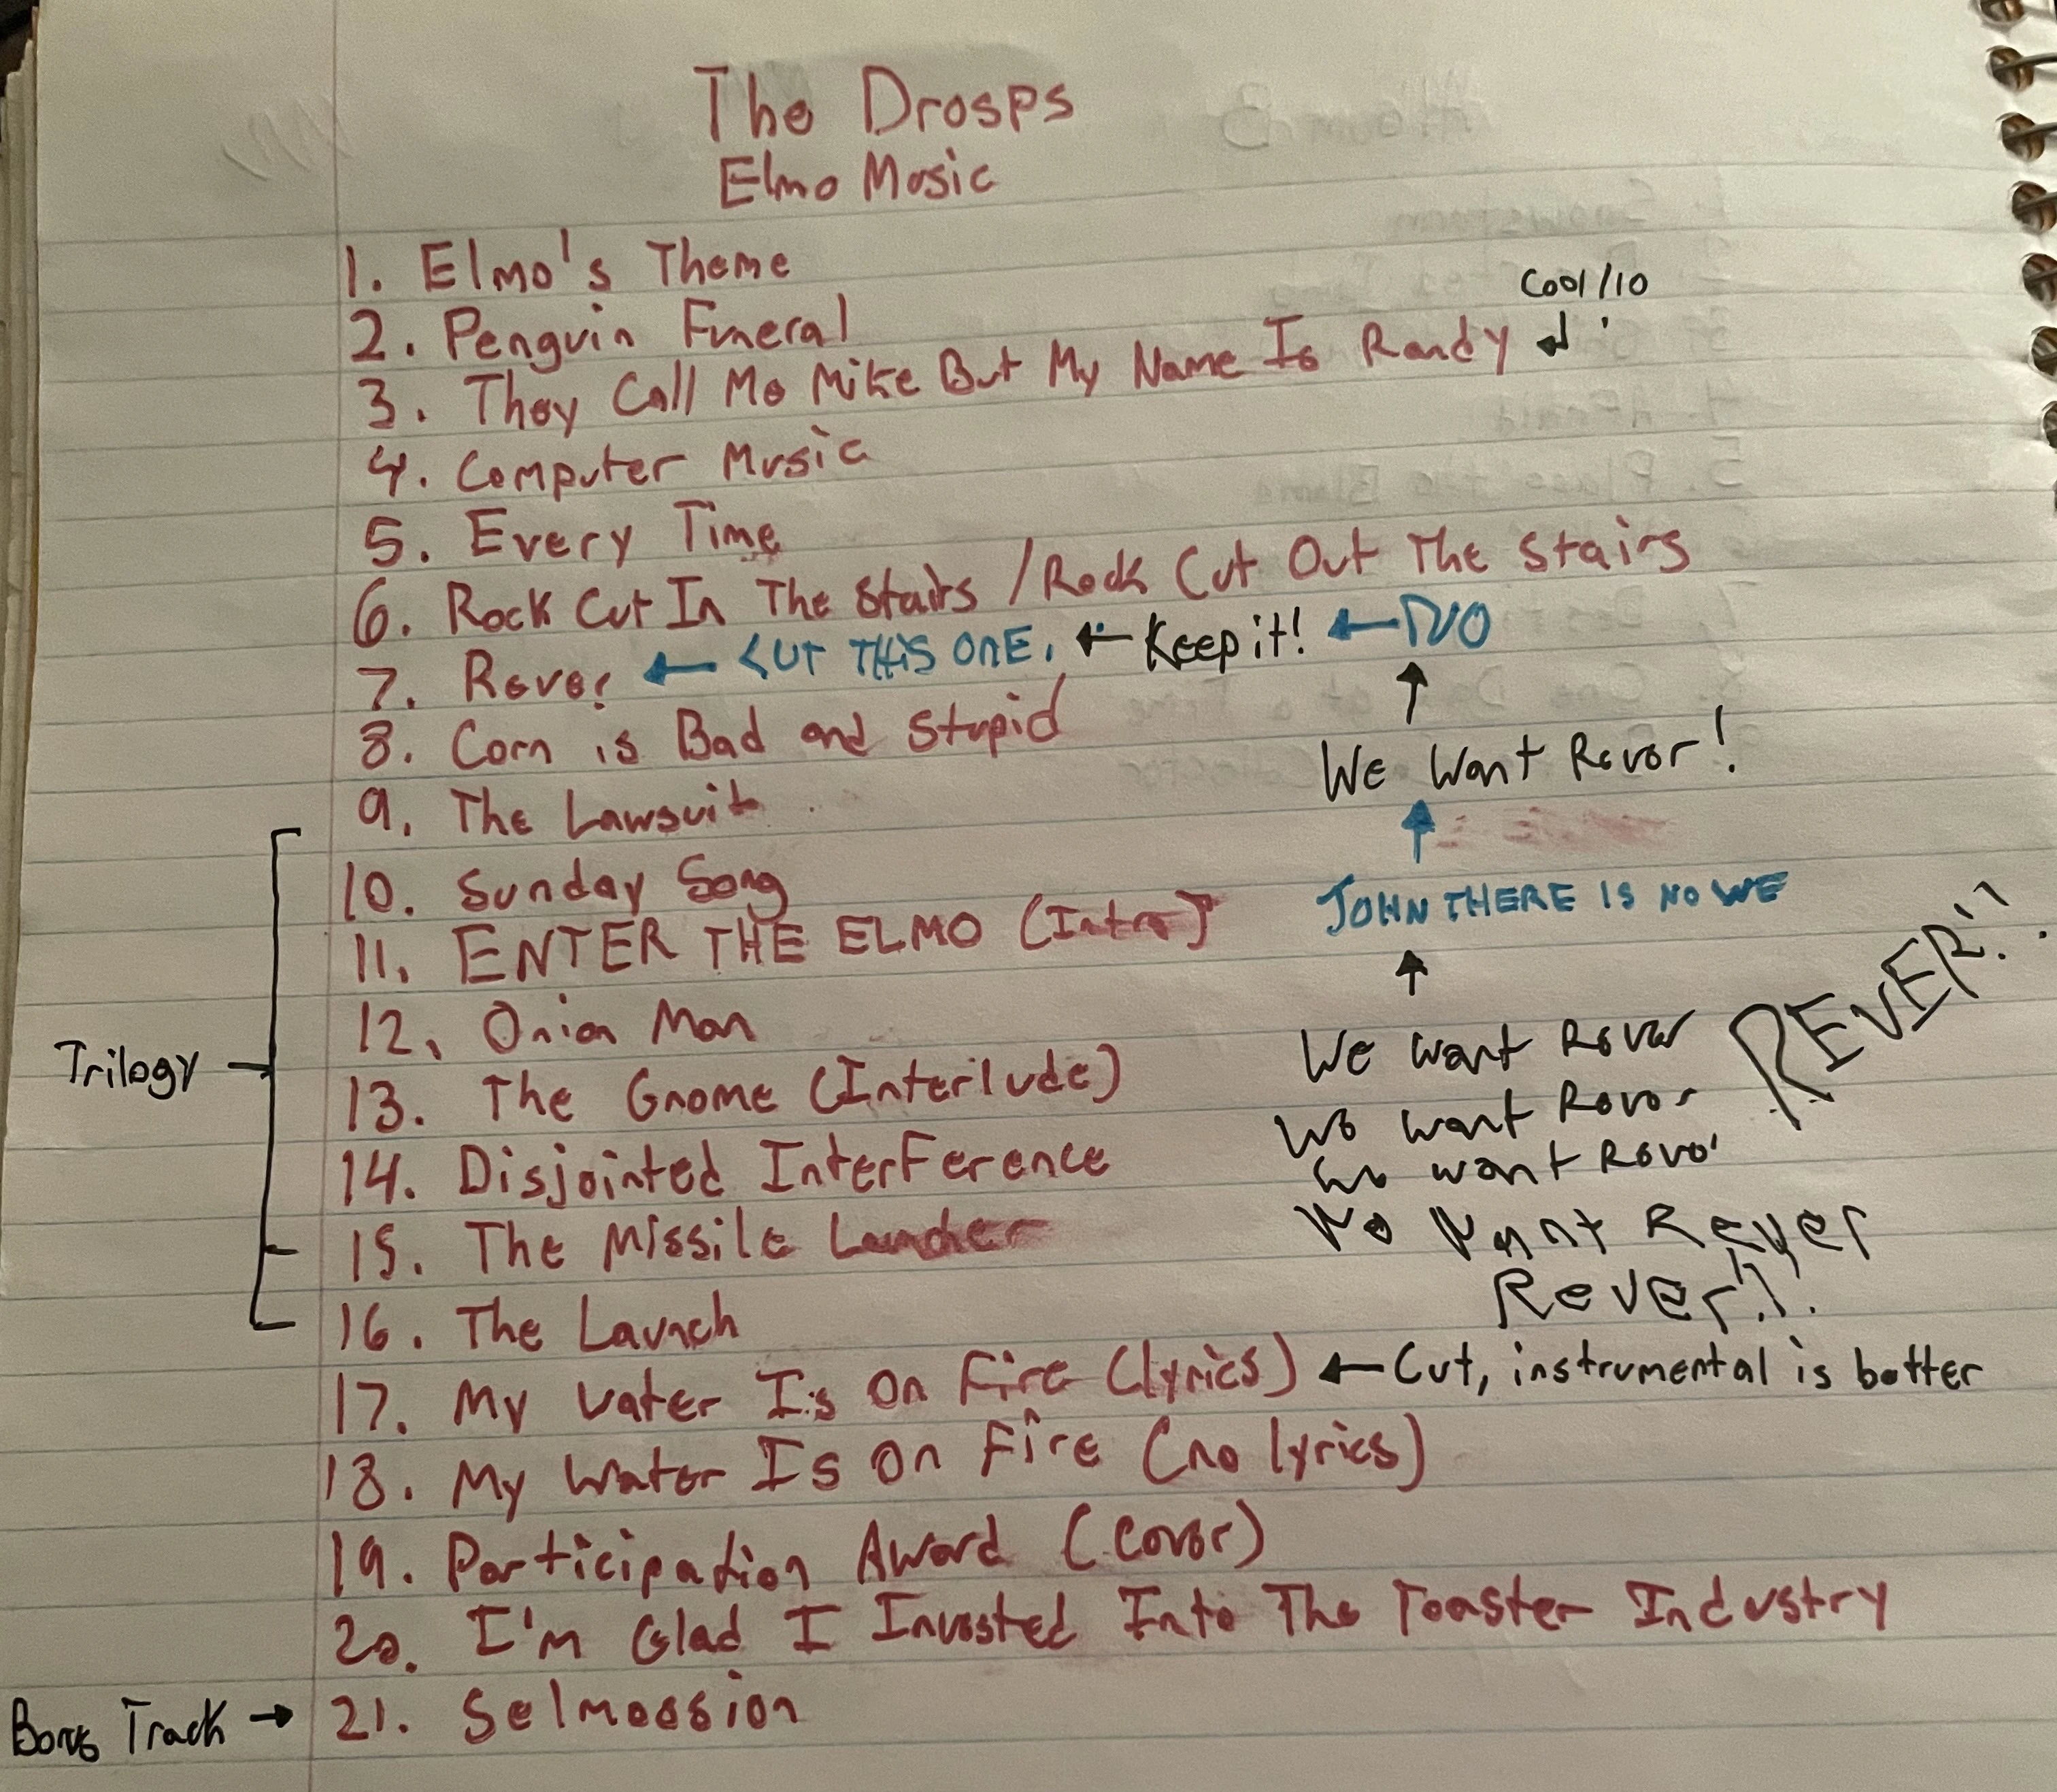 The Drosps
Elmo Music
1. Elmo's Theme
Cool/10
2. Penguin Funeral
3. They Call Me Mike But My Name Is Randy
4. Computer Music
5. Every Time
6. Rock Cut In The Stairs / Rock Cut Out The Stairs
7. Rever ← CUT THIS ONE. ← Keep it! ← NO
8. Corn is Bad and Stupid
We Want Rever!
9. The Lawsuit
10. Sunday Song
JOHN THERE IS NO WE
11. ENTER THE ELMO (Intro)
REVER!!
12. Onion Man
We want Rever
Trilogy
13. The Gnome (Interlude)
We want Rever
14. Disjointed Interference
We want Rever
15. The Missile Launcher
We Want Rever
Rever!!
16. The Launch
17. My Water Is On Fire (lyrics) ← Cut, instrumental is better
18. My Water Is On Fire (no lyrics)
19. Participation Award (Cover)
20. I'm Glad I Invested Into The Toaster Industry
Bonus Track → 21. Selmossion